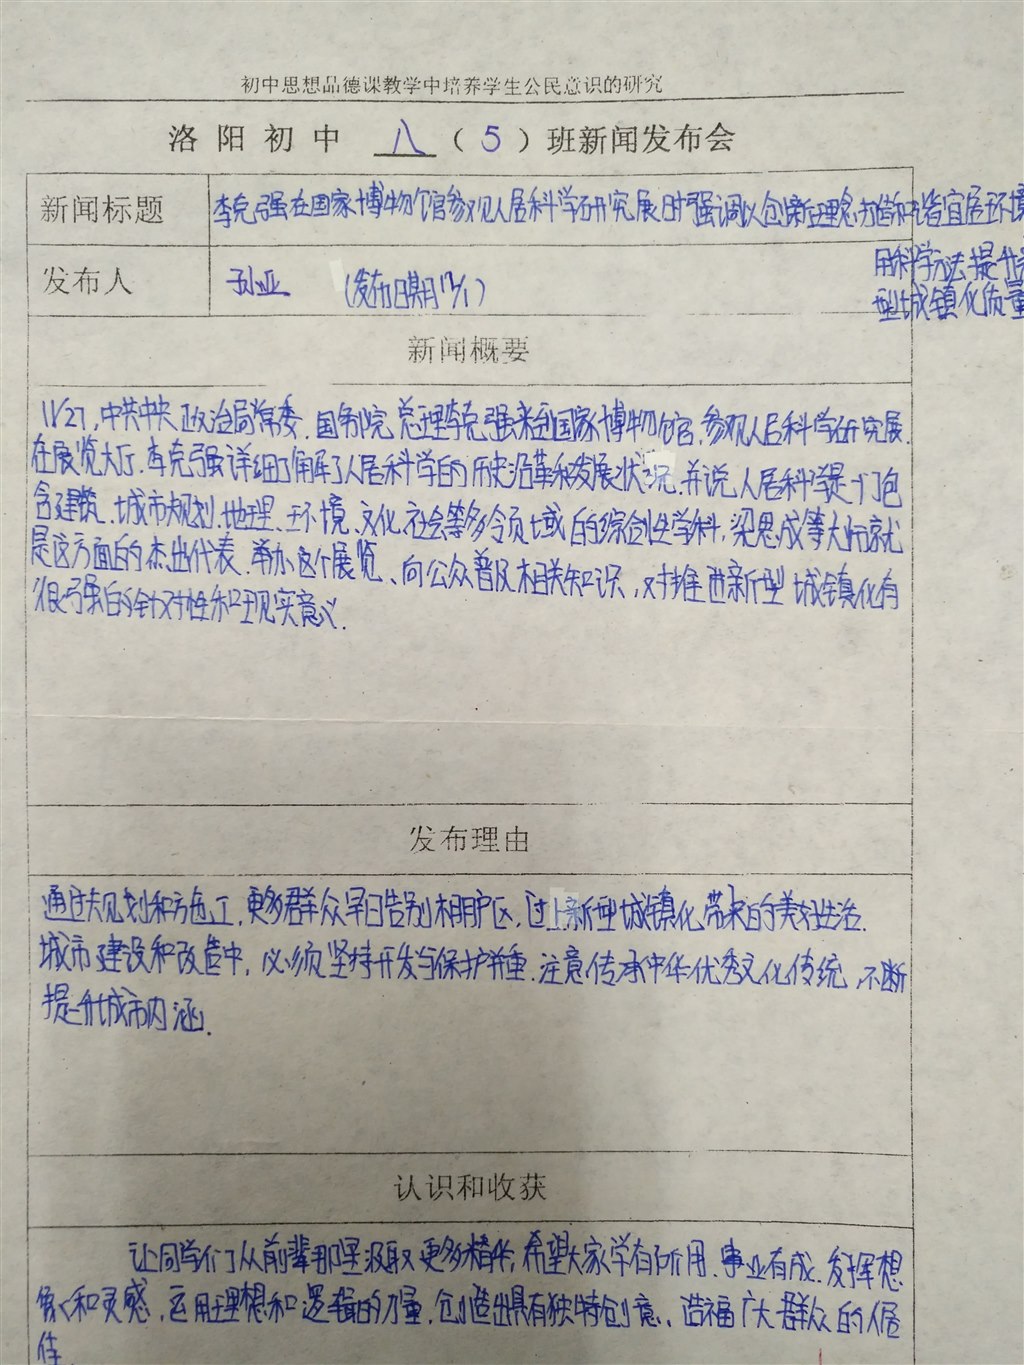 初中思想品德课教学中培养学生公民意识的研究
洛阳初中 八 （5）班新闻发布会
新闻标题 李克强在国家博物馆参观人居科学研究展时强调以创新理念打造和谐宜居环境
用科学方法提升
型城镇化质量
发布人 孙亚 （发布日期12/1）
新闻概要
11/27，中共中央政治局常委、国务院总理李克强来到国家博物馆，参观人居科学研究展.
在展览大厅，李克强详细了解了人居科学的历史沿革和发展状况.并说人居科学是一门包
含建筑、城市规划、地理、环境、文化、社会等多领域的综合性学科，梁思成等大师就
是这方面的杰出代表.举办这个展览、向公众普及相关知识，对推进新型城镇化有
很强的针对性和现实意义.
发布理由
通过规划和施工，更多群众早日告别棚户区，过上新型城镇化带来的美好生活.
城市建设和改造中，必须坚持开发与保护并重.注意传承中华优秀文化传统，不断
提升城市内涵.
认识和收获
让同学们从前辈那里汲取更多精华，希望大家学有所用、事业有成.发挥想
象和灵感，运用理想和逻辑的力量.创造出具有独特创意、造福广大群众的人居
佳